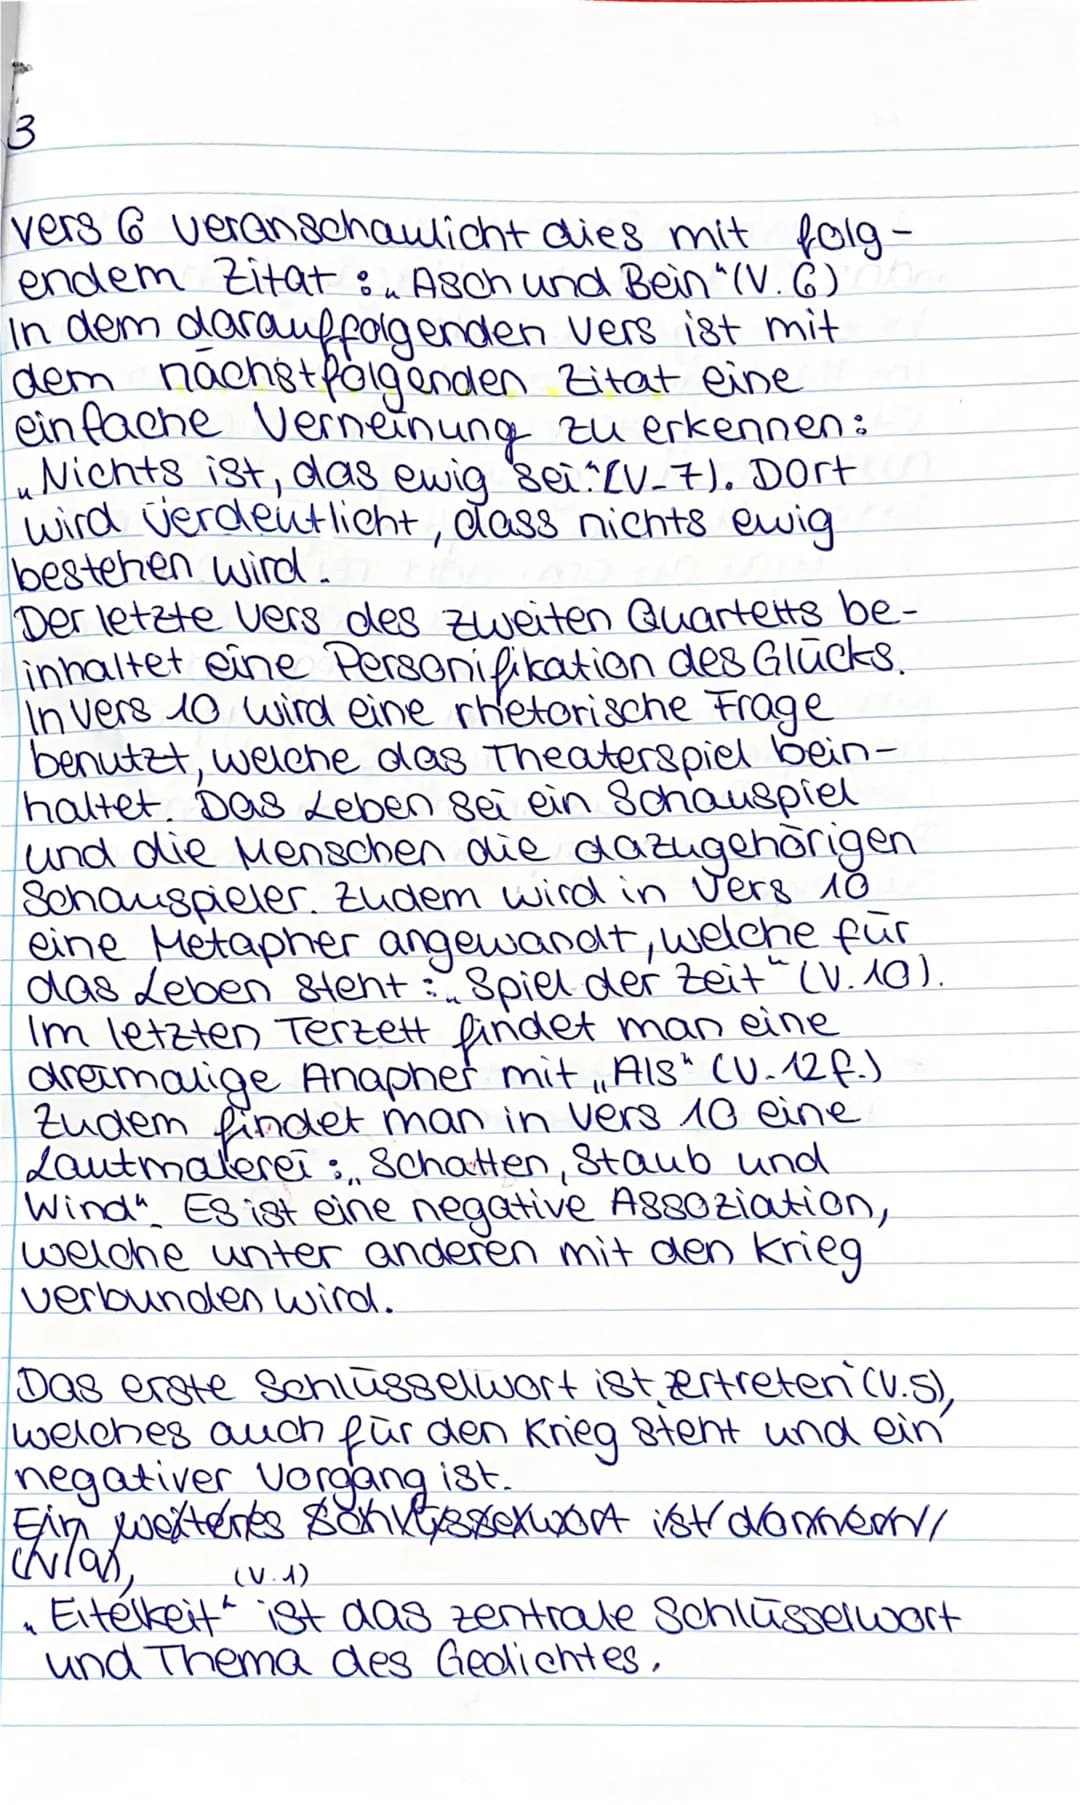 3
vers 6 veranschaulicht dies mit folg-
endem Zitat: „Asch und Bein“ (V. 6)
In dem darauffolgenden Vers ist mit
dem nächstfolgenden Zitat eine
einfache Verneinung zu erkennen:
„Nichts ist, das ewig sei“ (V. 7). Dort
wird verdeutlicht, dass nichts ewig
bestehen wird.
Der letzte Vers des zweiten Quartetts be-
inhaltet eine Personifikation des Glücks.
In Vers 10 wird eine rhetorische Frage
benutzt, welche das Theaterspiel bein-
haltet. Das Leben sei ein Schauspiel
und die Menschen die dazugehörigen
Schauspieler. Zudem wird in Vers 10
eine Metapher angewandt, welche für
das Leben steht: „Spiel der Zeit“ (V. 10).
Im letzten Terzett findet man eine
dreimalige Anapher mit „Als“ (V. 12 f.)
Zudem findet man in Vers 10 eine
Lautmalerei: „Schatten, Staub und
Wind“. Es ist eine negative Assoziation,
welche unter anderen mit den Krieg
verbunden wird.
Das erste Schlüsselwort ist „zertreten“ (V. 5),
welches auch für den Krieg steht und ein
negativer Vorgang ist.
Ein weiteres Schlüsselwort ist
(V. 1)
„Eitelkeit“ ist das zentrale Schlüsselwort
und Thema des Gedichtes.